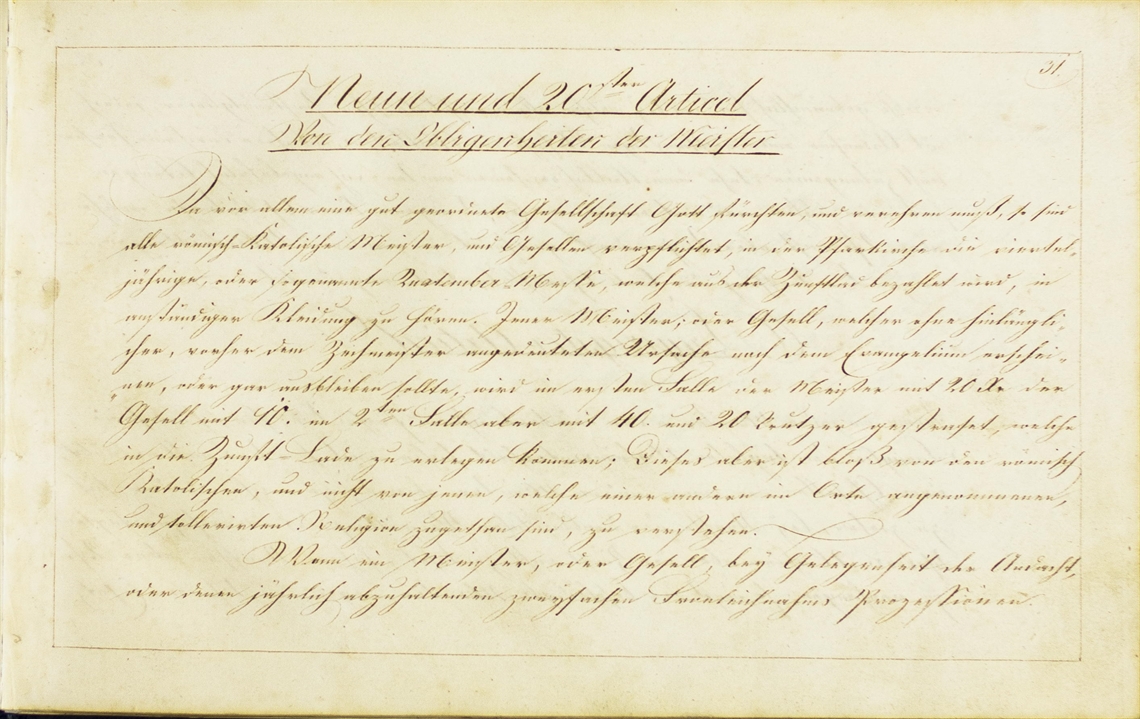 31.
Neun und 20ster Articel
Von den Obligenheiten der Meister
Da vor allem eine gut geordnete Gesellschaft Gott fürchten, und verehren muß, so sind
alle römisch-Katolische Meister, und Gesellen verpflichtet, in der Pfarkirche die viertel-
jährige, oder sogenannte Quatember-Messe, welche aus der Zunftlad bezahlet wird, in
anständiger Kleidung zu hören. Jener Meister; oder Gesell, welcher ohne hinlängli-
cher, vorher dem Zechmeister angedeuteten Ursache nach dem Evangelium erschei-
nen, oder gar ausbleiben sollte, wird im ersten Falle der Meister mit 20 Xr der
Gesell mit 10. im 2ten Falle aber mit 40. und 20 Kreutzer gestrafet, welche
in die Zunft-Lade zu erlegen kommen; Dieses aber ist bloß von den römisch
Katolischen, und nicht von jenen, welche einer andern im Orte angenommenen,
und tollerirten Religion zugethan sind, zu verstehen.
Wann ein Meister, oder Gesell, bey Gelegenheit der Andacht,
oder denen jährlich abzuhaltenden zweyfachen Fronleichnahms Prozessionen